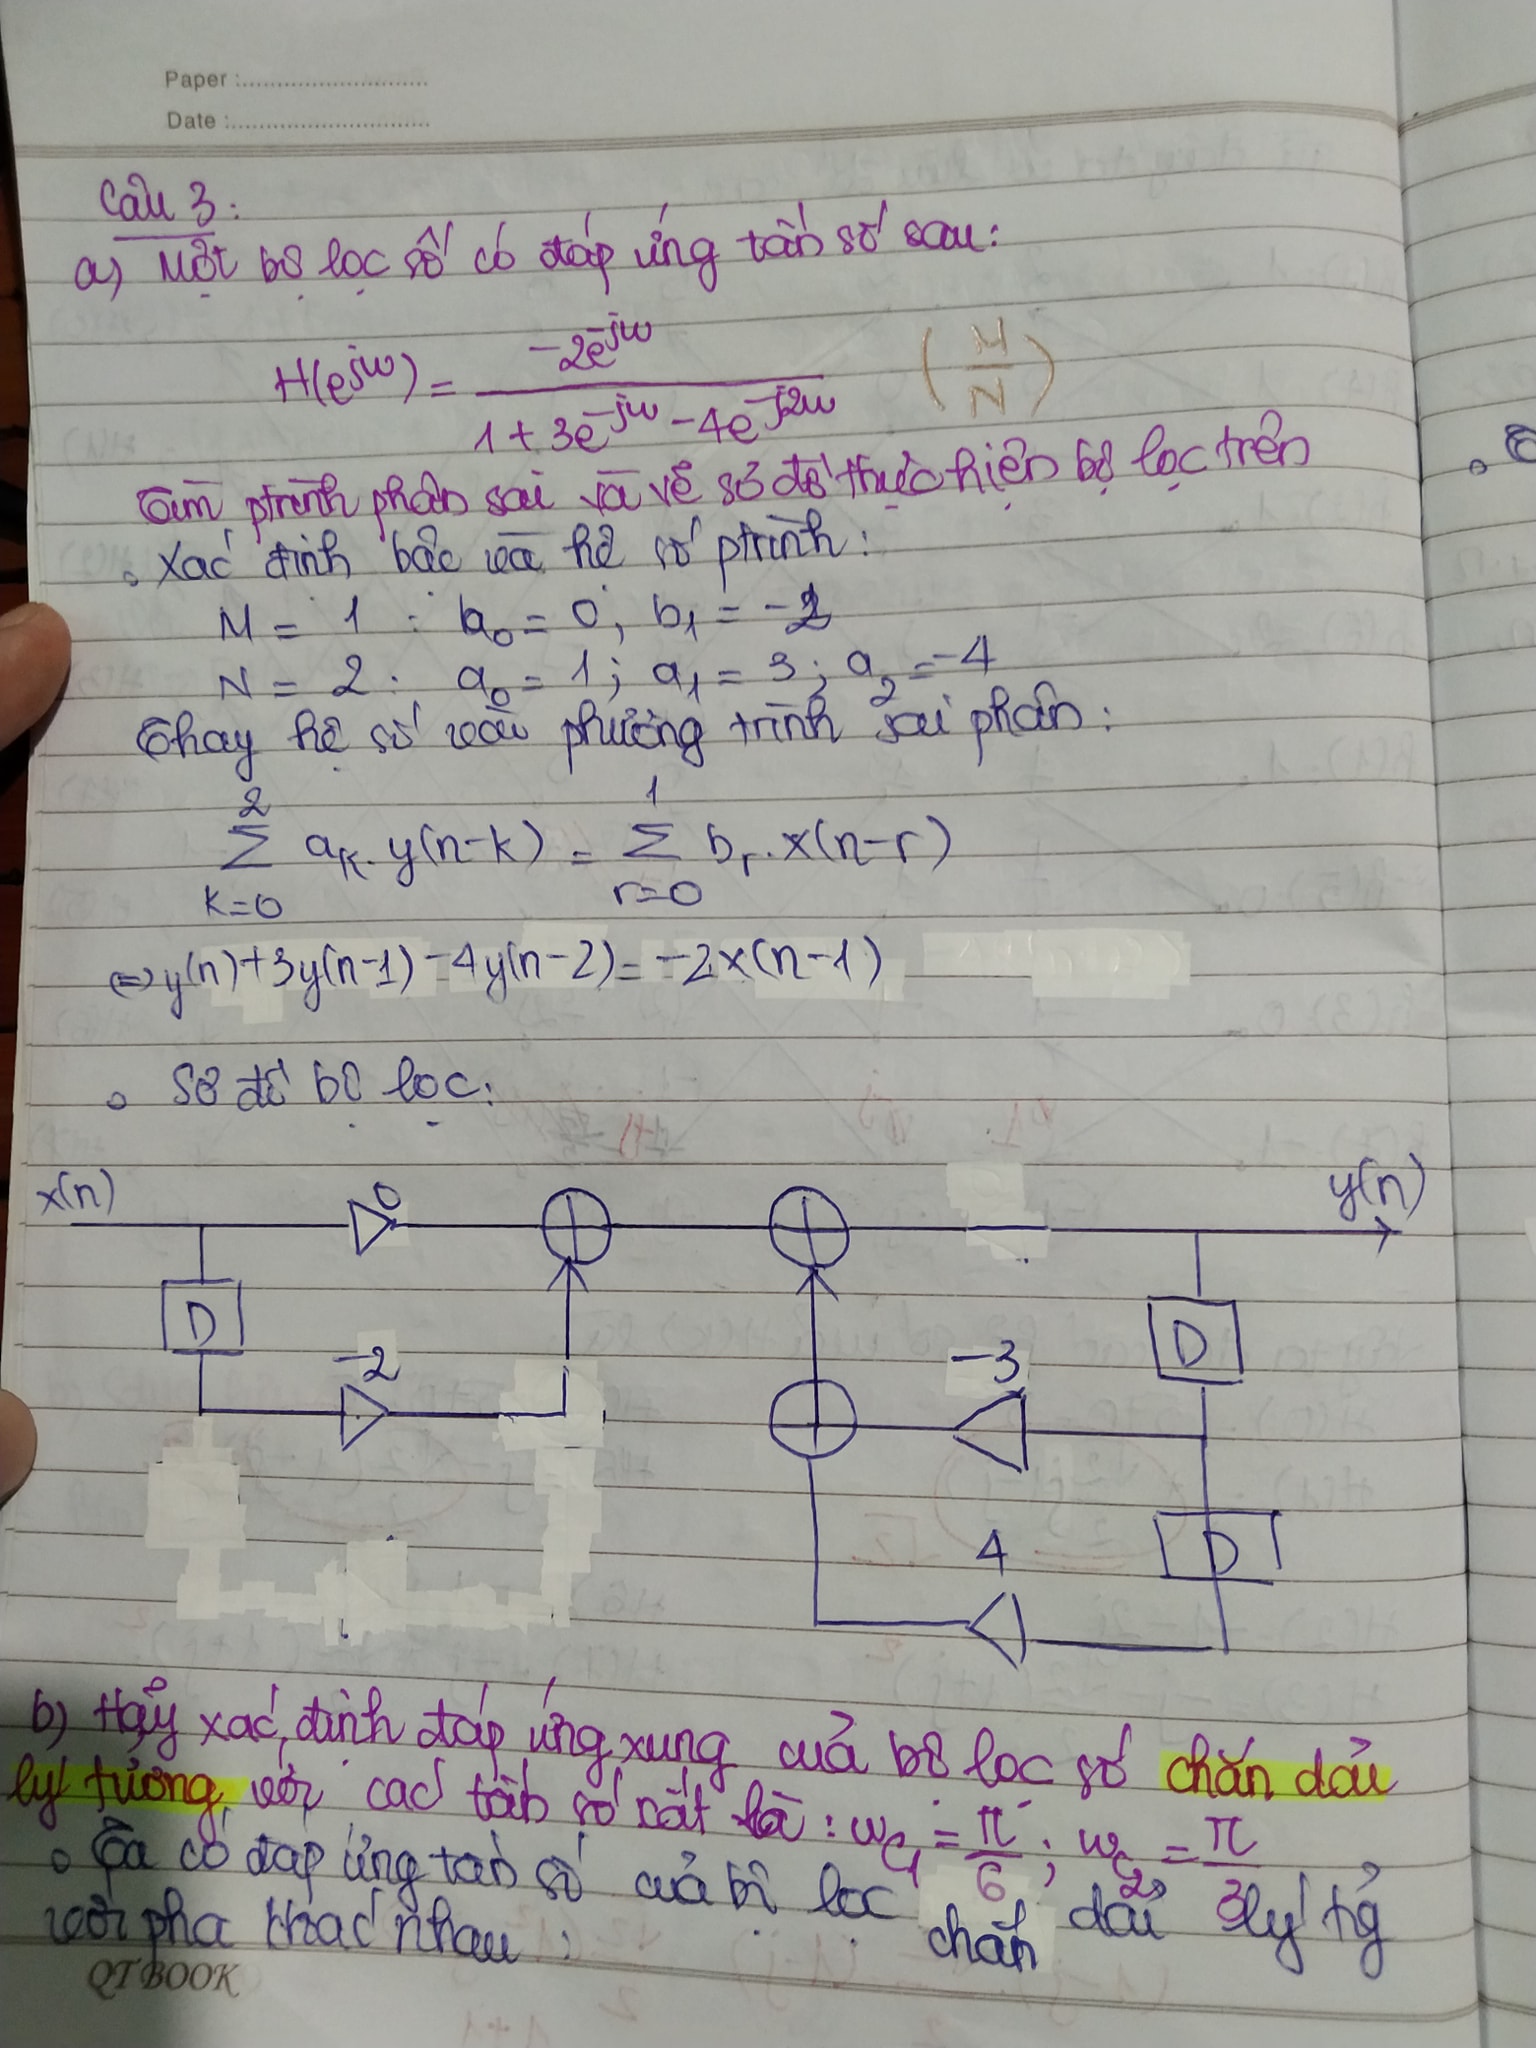 Paper :
Date :
Câu 3:
a) Một bộ lọc số có đáp ứng tần số sau:
H(e^jω) = -2e^-jω / (1 + 3e^-jω - 4e^-j2ω) (M/N)
Tìm ptrình phân sai và vẽ sơ đồ thực hiện bộ lọc trên
. Xác định bậc và hệ số ptrình:
M = 1 : b₀ = 0; b₁ = -2
N = 2 : a₀ = 1; a₁ = 3; a₂ = -4
Thay hệ số vào phương trình sai phân:
∑_{k=0}^{2} a_k. y(n-k) = ∑_{r=0}^{1} b_r. x(n-r)
⇔ y(n)+3y(n-1)-4y(n-2)= -2x(n-1)
. Sơ đồ bộ lọc:
x(n) 0 y(n)
D D
-2 -3
4 D
b) Hãy xác định đáp ứng xung của bộ lọc số chắn dải
lý tưởng với các tần số cắt là: ω_c1 = π/6 ; ω_c2 = π/3
. Ta có đáp ứng tần số của bộ lọc chắn dải lý tg
với pha khác nhau :
QT BOOK